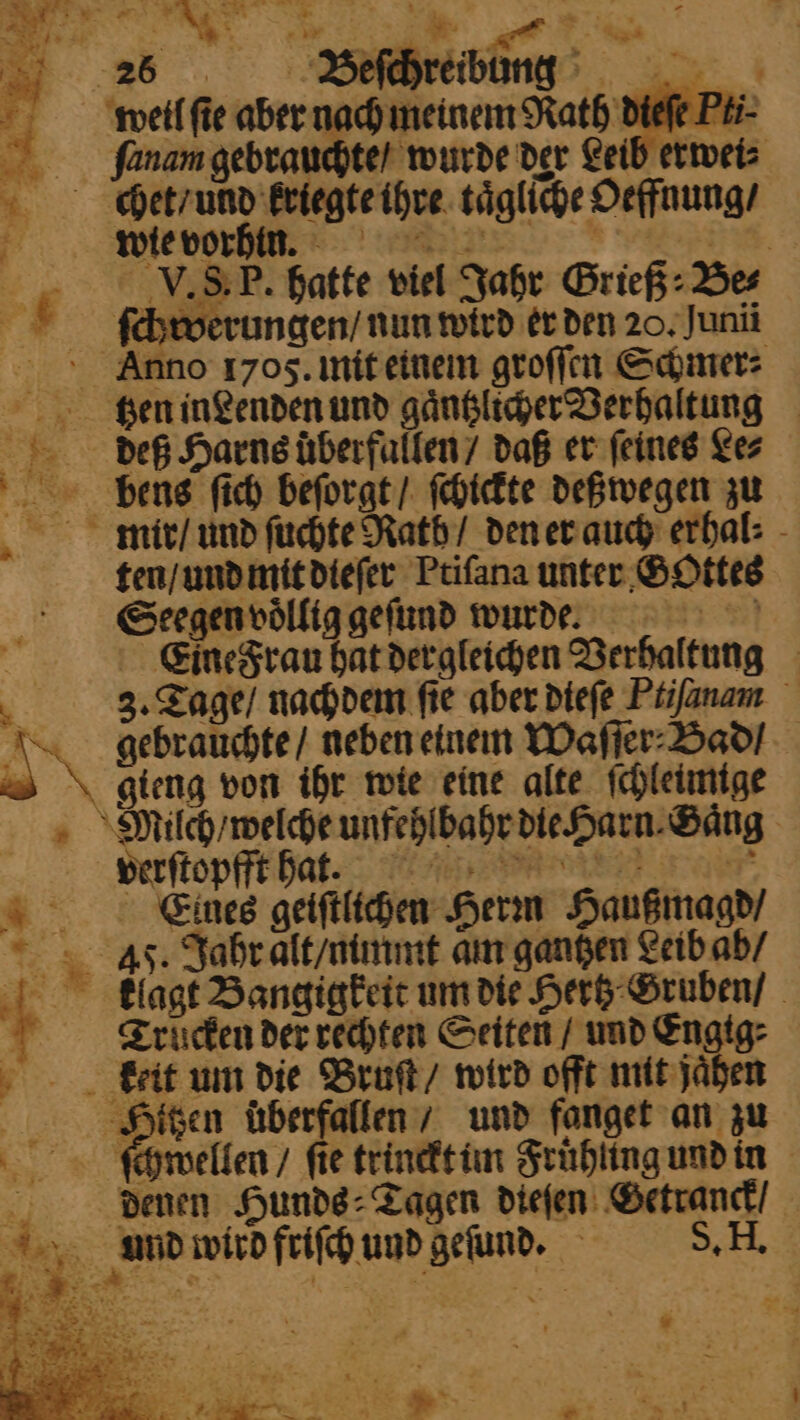 26 Beſchreibung
weil ſie aber nach meinem Rath dieſe Pti-
ſanam gebrauchte/ wurde der Leib erwei-
chet/ und kriegte ihre tägliche Oeffnung/
wie vorhin.
V. S. P. hatte viel Jahr Grieß-Be-
ſchwerungen/ nun wird er den 20. Junii
Anno 1705. mit einem groſſen Schmer-
tzen in Lenden und gäntzlicher Verhaltung
deß Harns überfallen/ daß er ſeines Le-
bens ſich beſorgt/ ſchickte deßwegen zu
mir/ und ſuchte Rath/ den er auch erhal-
ten/ und mit dieſer Ptiſana unter GOttes
Seegen völlig geſund wurde.
Eine Frau hat dergleichen Verhaltung
3. Tage/ nachdem ſie aber dieſe Ptiſanam
gebrauchte/ neben einem Waſſer-Bad/
gieng von ihr wie eine alte ſchleimige
Milch/ welche unfehlbahr die Harn-Gäng
verſtopfft hat.
Eines geiſtlichen Herrn Haußmagd/
45. Jahr alt/ nimmt am gantzen Leib ab/
klagt Bangigkeit um die Hertz-Gruben/
Trucken der rechten Seiten/ und Engig-
keit um die Bruſt/ wird offt mit jähen
Hitzen überfallen/ und fanget an zu
ſchwellen/ ſie trinckt im Frühling und in
denen Hunds-Tagen dieſen Getranck/
und wird friſch und geſund. S. H.